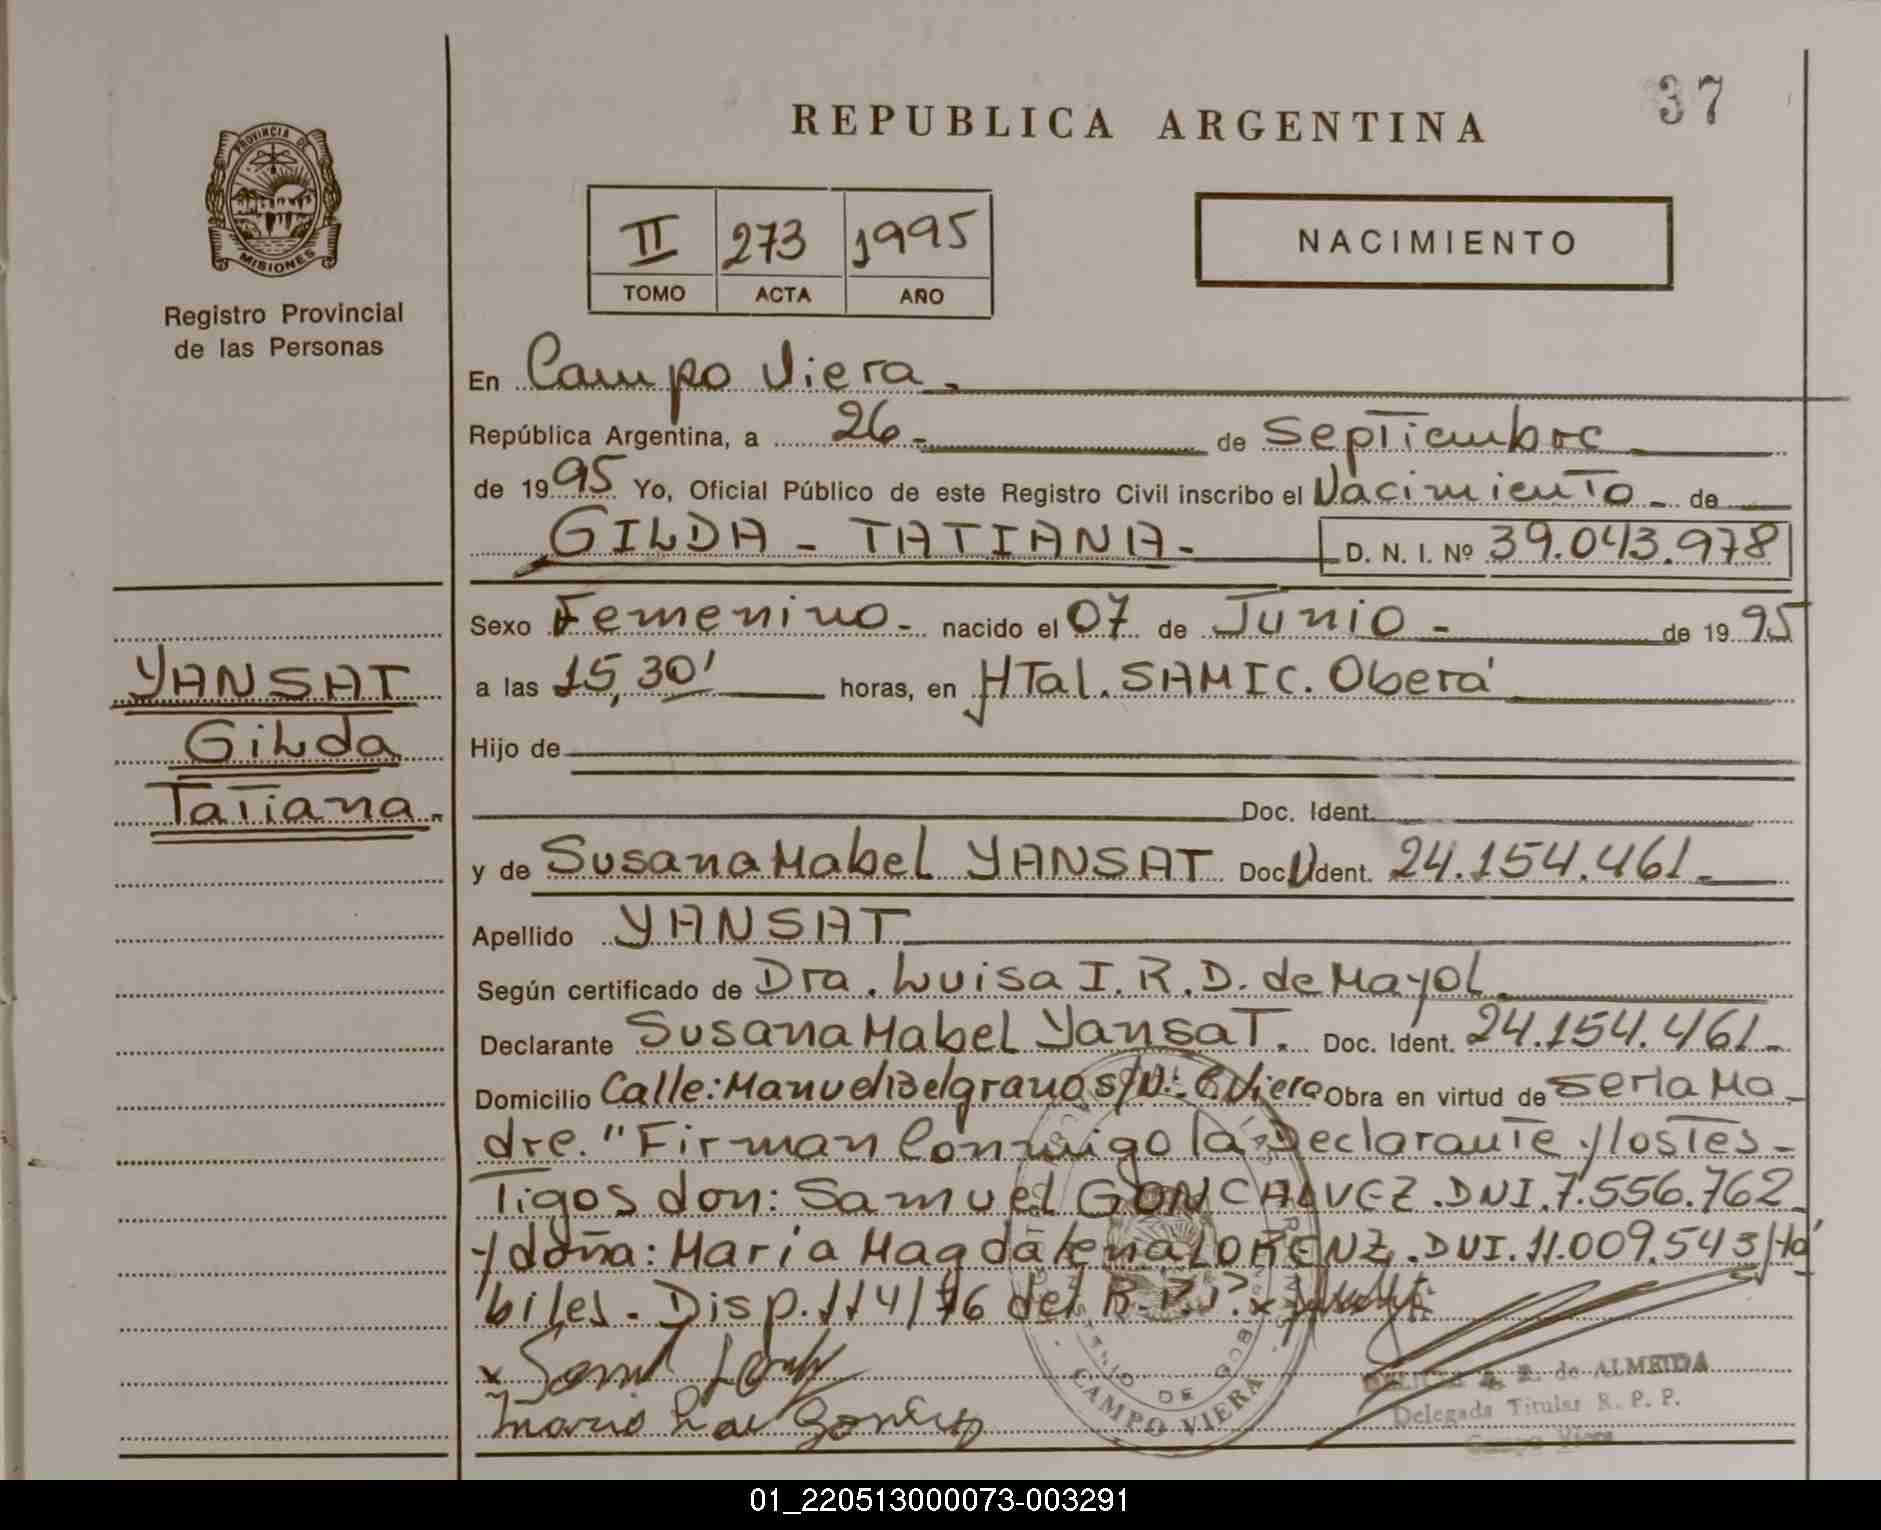 37
REPUBLICA ARGENTINA
PROVINCIA DE
MISIONES
Registro Provincial
de las Personas
II 273 1995
TOMO ACTA AÑO
NACIMIENTO
En Campo Viera.
República Argentina, a 26 - de Septiembre
de 1995 Yo, Oficial Público de este Registro Civil inscribo el Nacimiento - de
GILDA - TATIANA - D. N. I. Nº 39.043.978
Sexo Femenino - nacido el 07 de Junio - de 1995
YANSAT
a las 15,30' horas, en HTal. SAMIC. Oberá
Gilda
Hijo de
Tatiana.
Doc. Ident.
y de Susana Mabel YANSAT Doc. Ident. 24.154.461 -
Apellido YANSAT
Según certificado de Dra. Luisa I. R. D. de Mayol
Declarante Susana Mabel Yansat. Doc. Ident. 24.154.461 -
Domicilio Calle: Manuel Belgrano s/Nº C. Viera Obra en virtud de ser la Ma
dre. "Firman Conmigo la Declarante y los Tes -
Tigos don: Samuel GONCHALVEZ. DNI. 7.556.762
y doña: María Magdalena LORENZ. DNI. 11.009.543/Há
biles. Disp. 114/76 del R.P.P. x
x
CAMPO VIERA
de ALMEIDA
Delegada Titular R. P. P.
Campo Viera
01_220513000073-003291